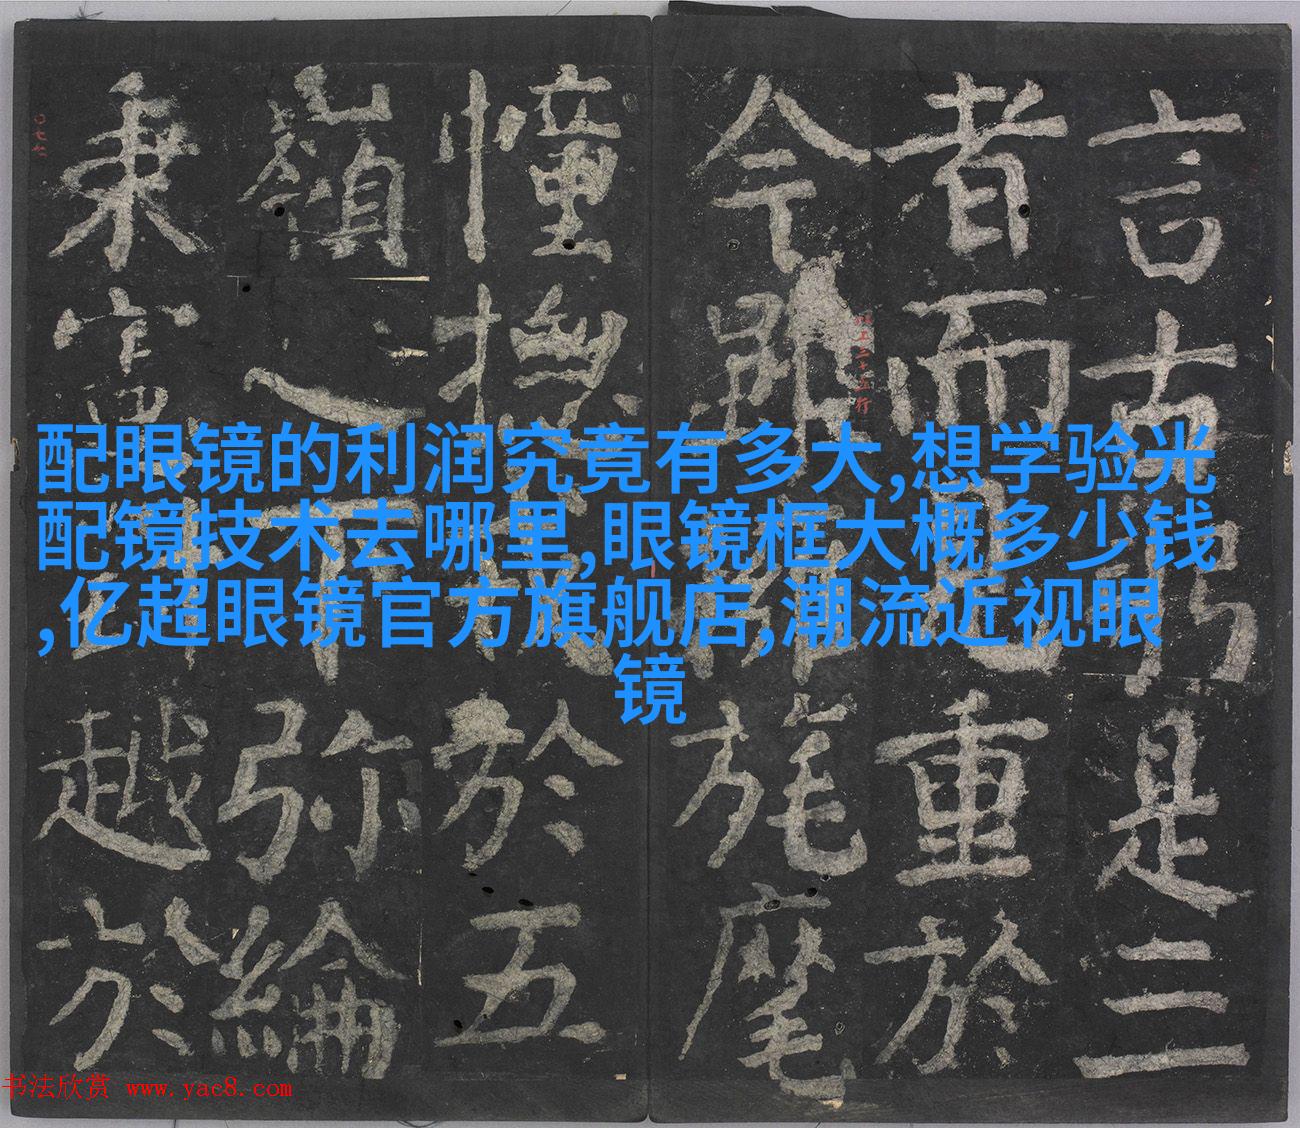 言古是三
者而已重於
今旄麾
幢撫於五
嶺之而弥綸
秉越於
配眼镜的利润究竟有多大,想学验光
配镜技术去哪里,眼镜框大概多少钱
,亿超眼镜官方旗舰店,潮流近视眼
镜
书法欣赏 www.yac8.com